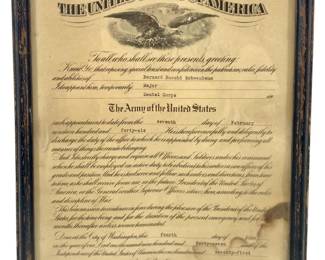 THE UNITED STATES OF AMERICA
To all who shall see these presents, greeting:
Know Ye, that reposing special trust and confidence in the patriotism, valor, fidelity
and abilities of Bernard Donald
I do appoint him, temporarily Major
Dental Corps in
The Army of the United States
such appointment to date from the seventh day of February
nineteen hundred and forty-six. He is therefore carefully and diligently to
discharge the duty of the office to which he is appointed by doing and performing all
manner of things thereunto belonging.
And I do strictly charge and require all Officers and Soldiers under his command
when he shall be employed on active duty to be obedient to him as an officer of his
grade and position. And he is to observe and follow such orders and directions, from time
to time, as he shall receive from me, or the future President of the United States of
America, or the General or other Superior Officers set over him, according to the rules
and discipline of War.
This Commission evidences an appointment in the Army of the United
States
months thereafter unless sooner terminated.
Done at the City of Washington, this fourth day of
in the year of our Lord one thousand nine hundred and forty-seven and of the
Independence of the United States of America the one hundred and seventy-first.